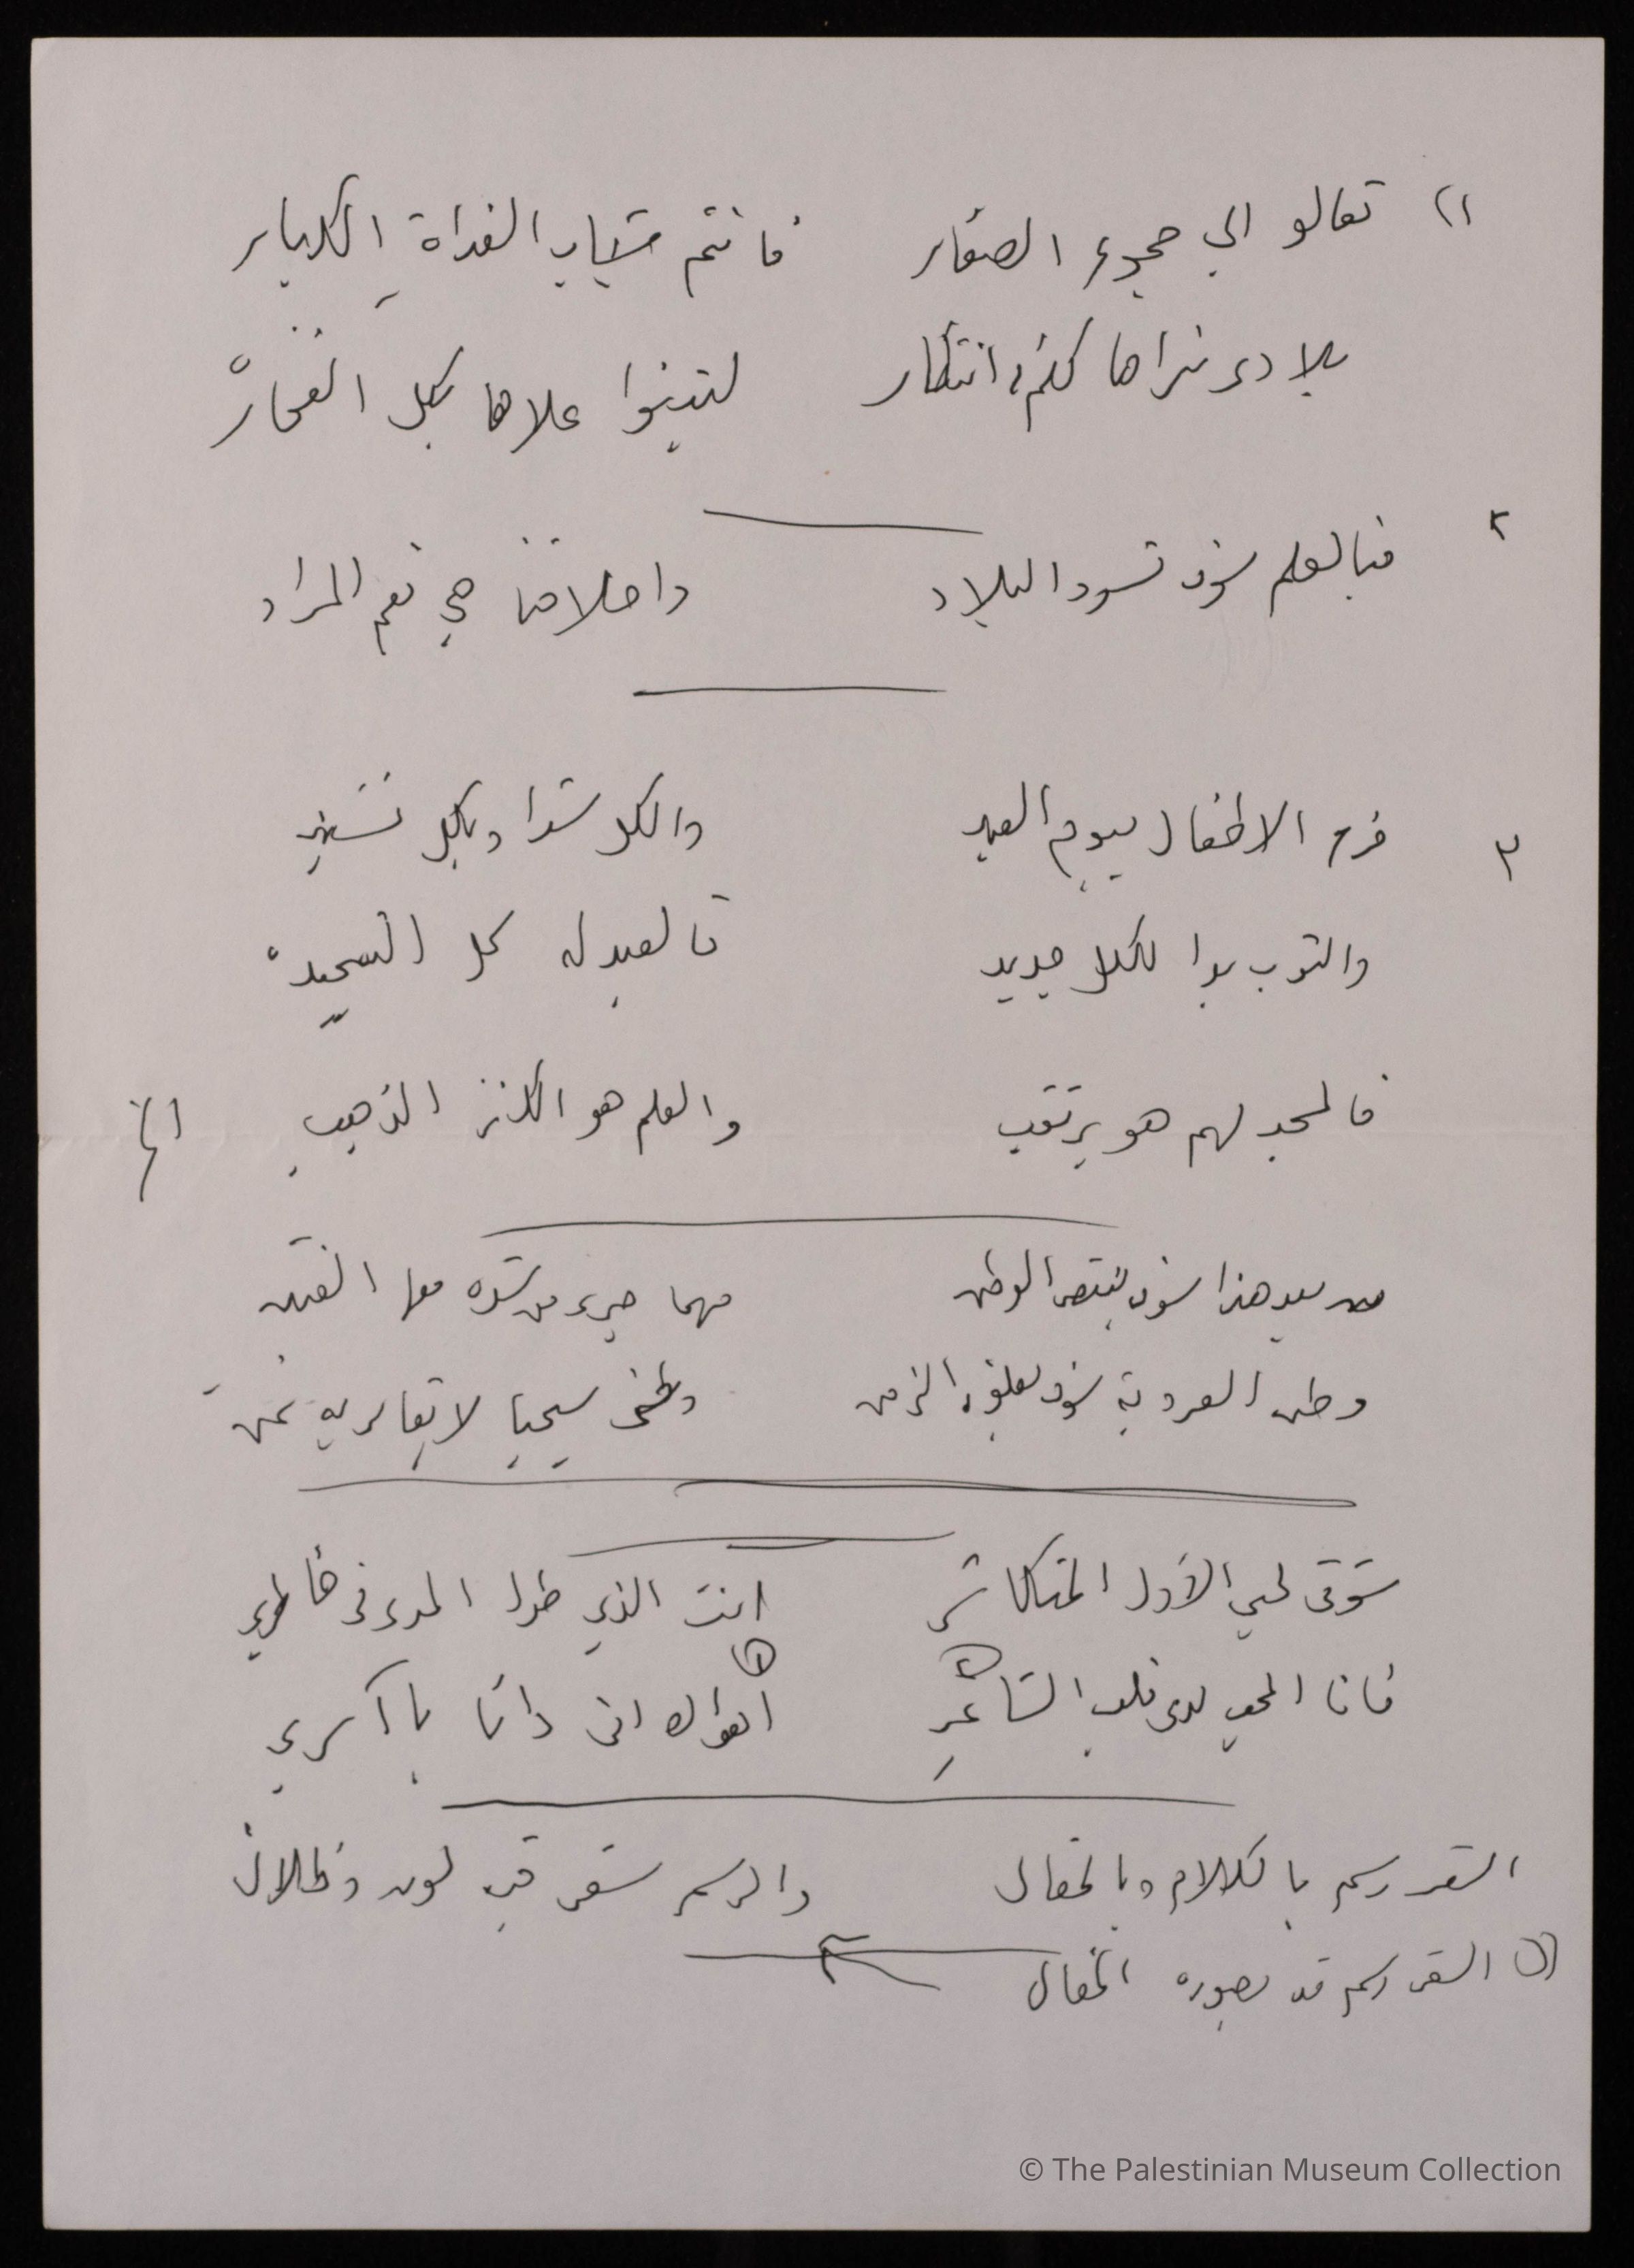 ١) تعالو الي جميع الصغار فانتم شباب الغداة الكبار
بلادي نراها كلم انتظار لتبنوا علاها بكل الفخار
٢ فبالعلم سوف تسود البلاد واخلاقنا هي نعم المراد
٣ فرح الاطفال بيوم العيد والكل شدا وبكل نشيد
والثوب بدا للكل جديد فالعيد له كل التمجيد
فالمجد لهم هو يرتقب والعلم هو الكنز الذهب
من بعد هذا سوف ينتصر الوطن مهما جرى من شده معها الفتن
وطن العروبة سوف الزمن وطني سيحيا لا ثمن
شوقي لحبي الأول المتكاثر انت الذي طول المدى في خاطري
فانا المحب لدى قلب الشاعر اهواك اني دائما يا آسري
الشعر رسم بالكلام وبالخيال والرسم شعر فيه لون وظلال
الشعر رسم قد يصوره الخيال
© The Palestinian Museum Collection